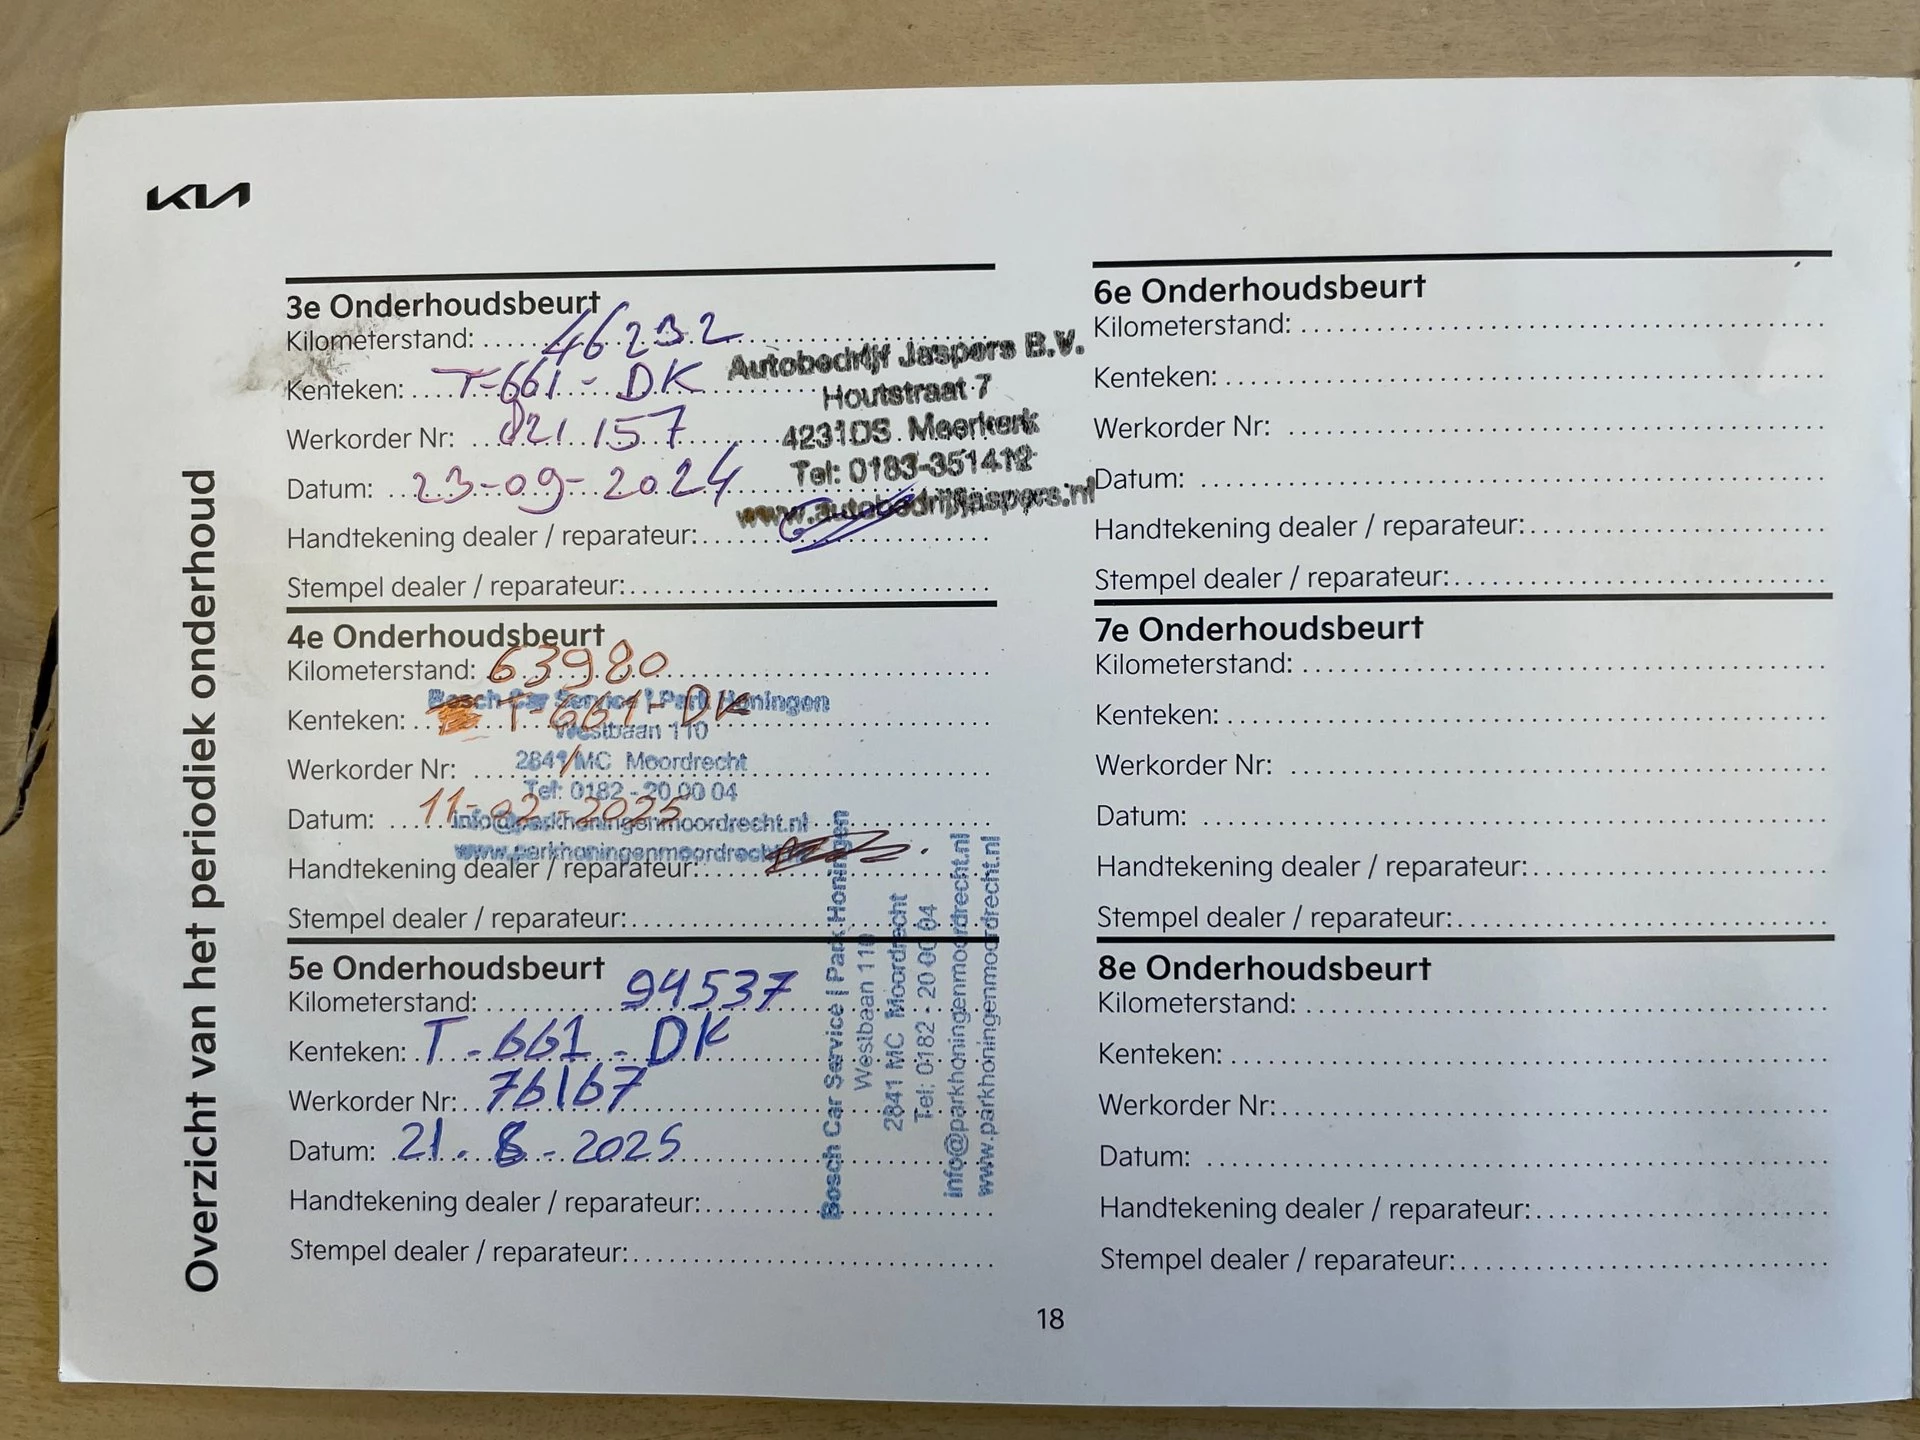 KIA
Overzicht van het periodiek onderhoud
3e Onderhoudsbeurt
Kilometerstand: 46232
Kenteken: T-661-DK
Werkorder Nr: 21157
Datum: 23-09-2024
Handtekening dealer / reparateur:
Stempel dealer / reparateur:
Autobedrijf Jaspers B.V.
Houtstraat 7
4231DS Meerkerk
Tel: 0183-351412
www.autobedrijfjaspers.nl
4e Onderhoudsbeurt
Kilometerstand: 63980
Kenteken: T-661-DK
Werkorder Nr:
Datum: 11-02-2025
Handtekening dealer / reparateur:
Stempel dealer / reparateur:
Bosch Car Service | Park Honingen
Westbaan 110
2841 MC Moordrecht
Tel: 0182 - 20 00 04
info@parkhoningenmoordrecht.nl
www.parkhoningenmoordrecht.nl
5e Onderhoudsbeurt
Kilometerstand: 94537
Kenteken: T-661-DK
Werkorder Nr: 76167
Datum: 21.8-2025
Handtekening dealer / reparateur:
Stempel dealer / reparateur:
Bosch Car Service | Park Honingen
Westbaan 110
2841 MC Moordrecht
Tel: 0182 - 20 00 04
info@parkhoningenmoordrecht.nl
www.parkhoningenmoordrecht.nl
6e Onderhoudsbeurt
Kilometerstand:
Kenteken:
Werkorder Nr:
Datum:
Handtekening dealer / reparateur:
Stempel dealer / reparateur:
7e Onderhoudsbeurt
Kilometerstand:
Kenteken:
Werkorder Nr:
Datum:
Handtekening dealer / reparateur:
Stempel dealer / reparateur:
8e Onderhoudsbeurt
Kilometerstand:
Kenteken:
Werkorder Nr:
Datum:
Handtekening dealer / reparateur:
Stempel dealer / reparateur:
18